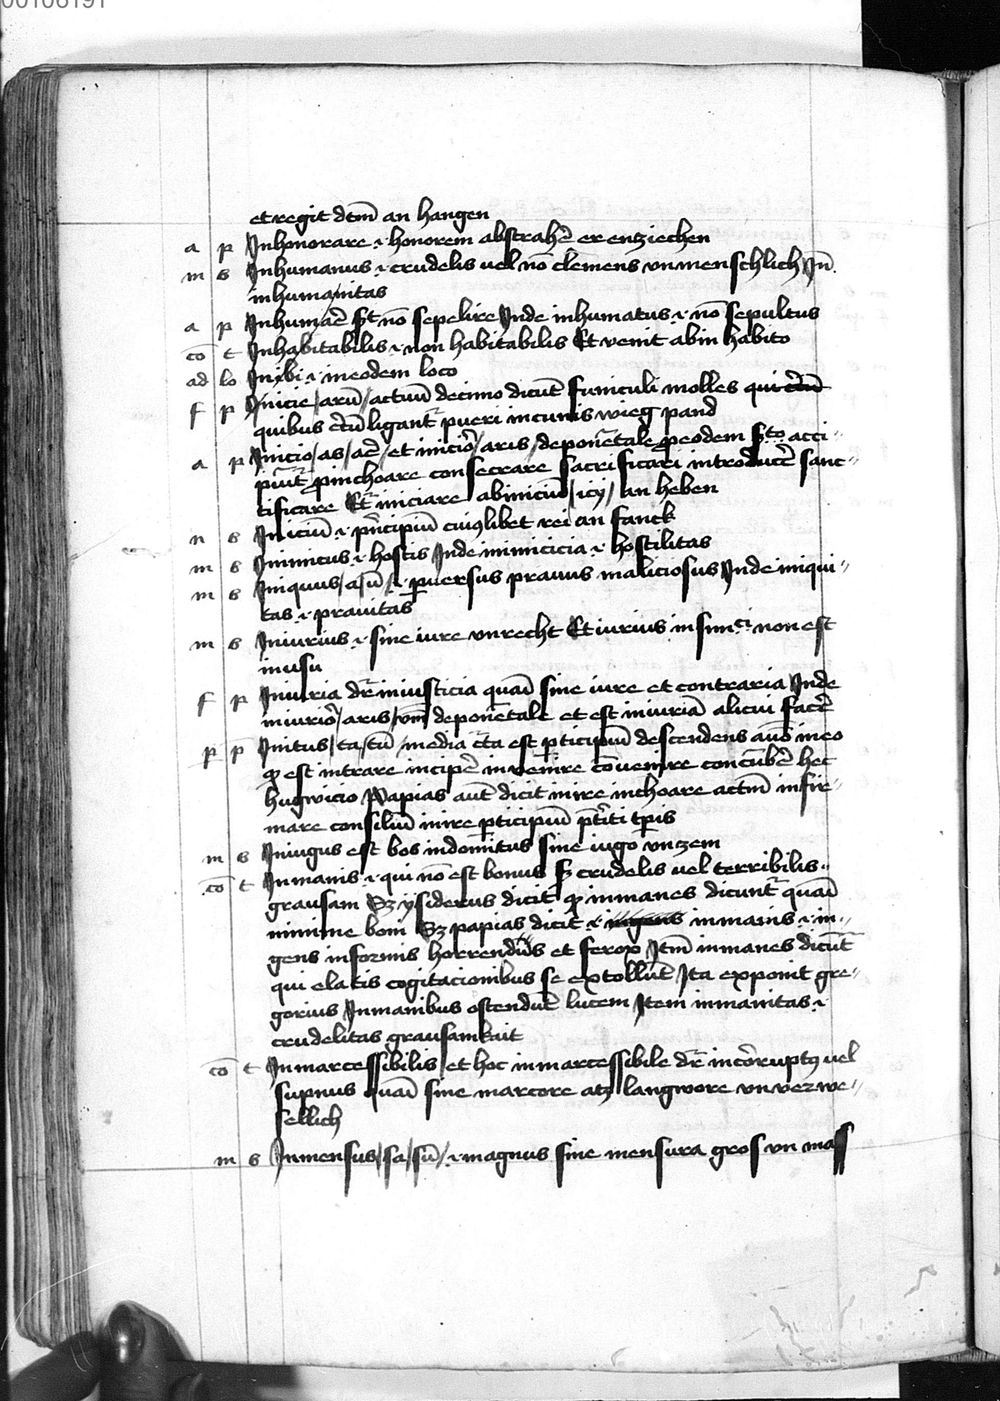 00106191
et regit dtm̄ an hangen
a p Inhonorare .i. honorem abstrahē er entziechen
m s Inhumanus .i. crudelis uel nō clemens vnmenschlich Jn̄
inhumanitas
a p Inhumāe st nō sepelire Inde inhumatus .i. nō sepultus
cō t Inhabitabilis .i. non habitabilis Et venit ab in habito
ad lo Inibi .i. in eodem loco
f p Inicie / arū / actuū decimo dicūt funiculi molles qui
quibus ligantr pueri in cunis wieg pand
a p Inicio / as / aē / et inicior / aris / deponētale p eodem sto acci
piūtr pinchoare consecrare sacrificari introducē sanc
tificare Etr iniciare ab iniciū / icij / an heben
n s Iniciū .i. pncipiū cuiuslibet rei an fanck
m s Inimicus .i. hostis Inde inimicicia .i. hostilitas
m s Iniquus / a / ū / .i. puersus prauus maliciosus Inde iniqui
tas .i. prauitas
m s Iniurius .i. sine iure vnrecht Et iurius non est
in usu
f p Iniuria dr iniusticia quaī sine iure et contraria Inde
iniurior / aris / vm̄ deponētale et est iniuriā alicui facē
p p Initus / ta / tū / media est pticipiū descendens a uō ineo
qd est intrare incipē in venire cōuenire concūbē hec
hugwicio Papias aūt dicit inire inchoare actm̄ infir
mare consiliū inire pticipiū ptiti tpis
m s Iniugus est bos indomitus sine iugo vnzem
cō t Inmanis .i. qui nō est bonus sz crudelis uel terribilis
grausam Sz ysiderus dicit qd inmanes dicuntr quaī
minime boni Sz papias dicit .i. ingens inmanis .i. in
gens informis horrendus et ferox Itm̄ inmanes dicūt
qui elatis cogitacionibus se extollūt Ita exponit gre
gorius Inmanibus ostendūt lucem Item inmanitas .i.
crudelitas grausamkait
cō t Inmarcessibilis / et hoc inmarcessibile dr incōruptus uel
supnus quaī sine marcore atz langwore vn verwe
sellich
m s Inmensus / sa / sū / .i. magnus sine mensura gros vn mass